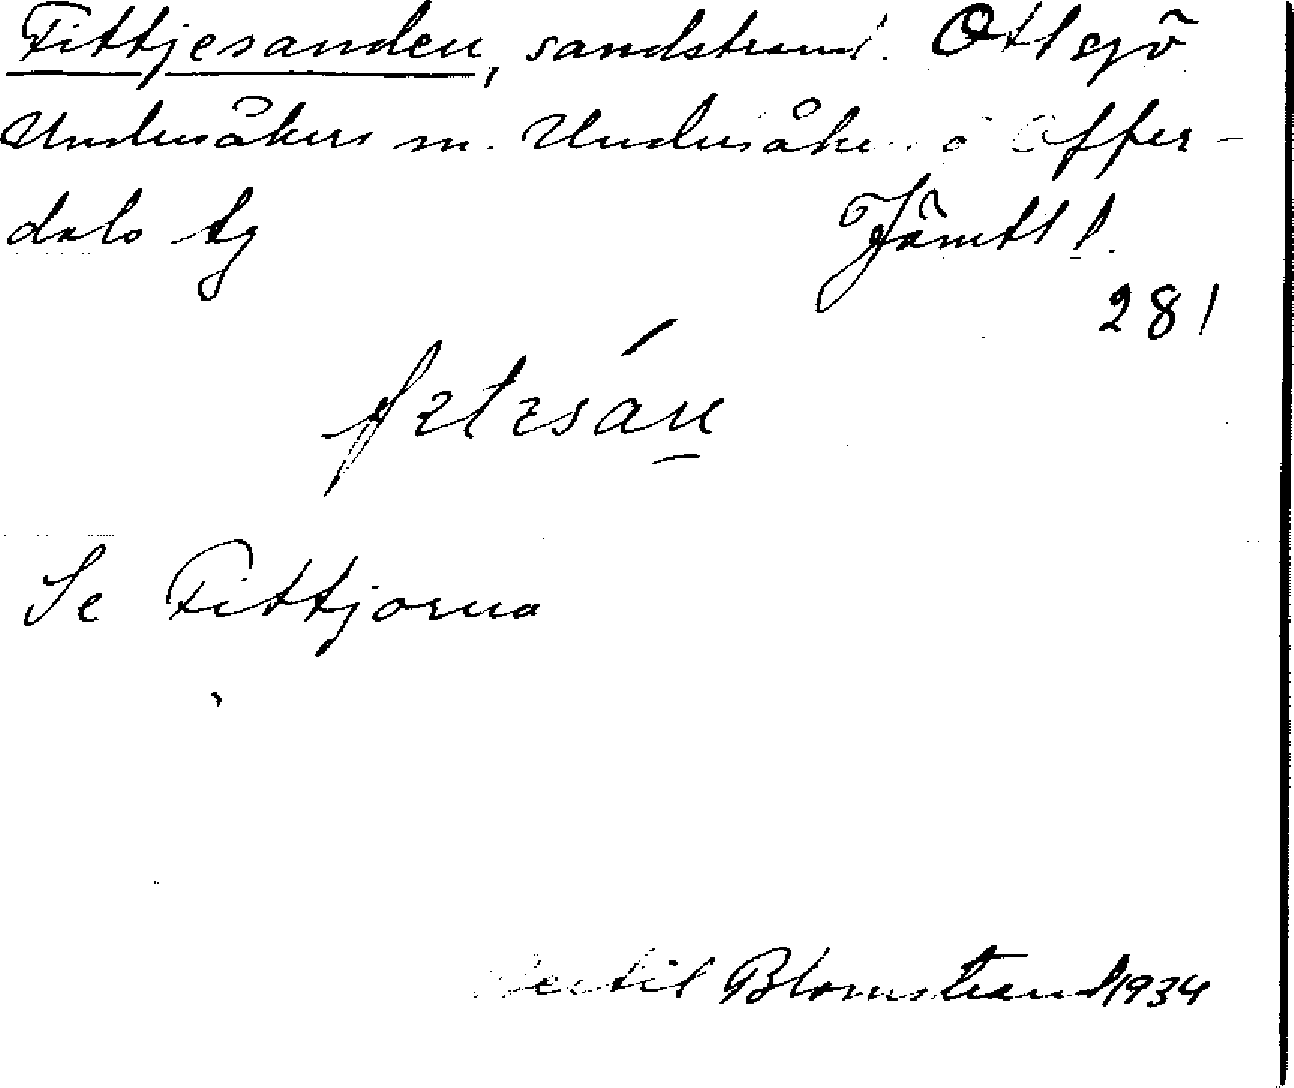 Fittjesanden, sandstrand. Ottsjö
Undersåkers sn. Undersåkers o Offer-
dals tg Jämtl l.
281
Se Fittjorna
Bertil Blomstrand 1934